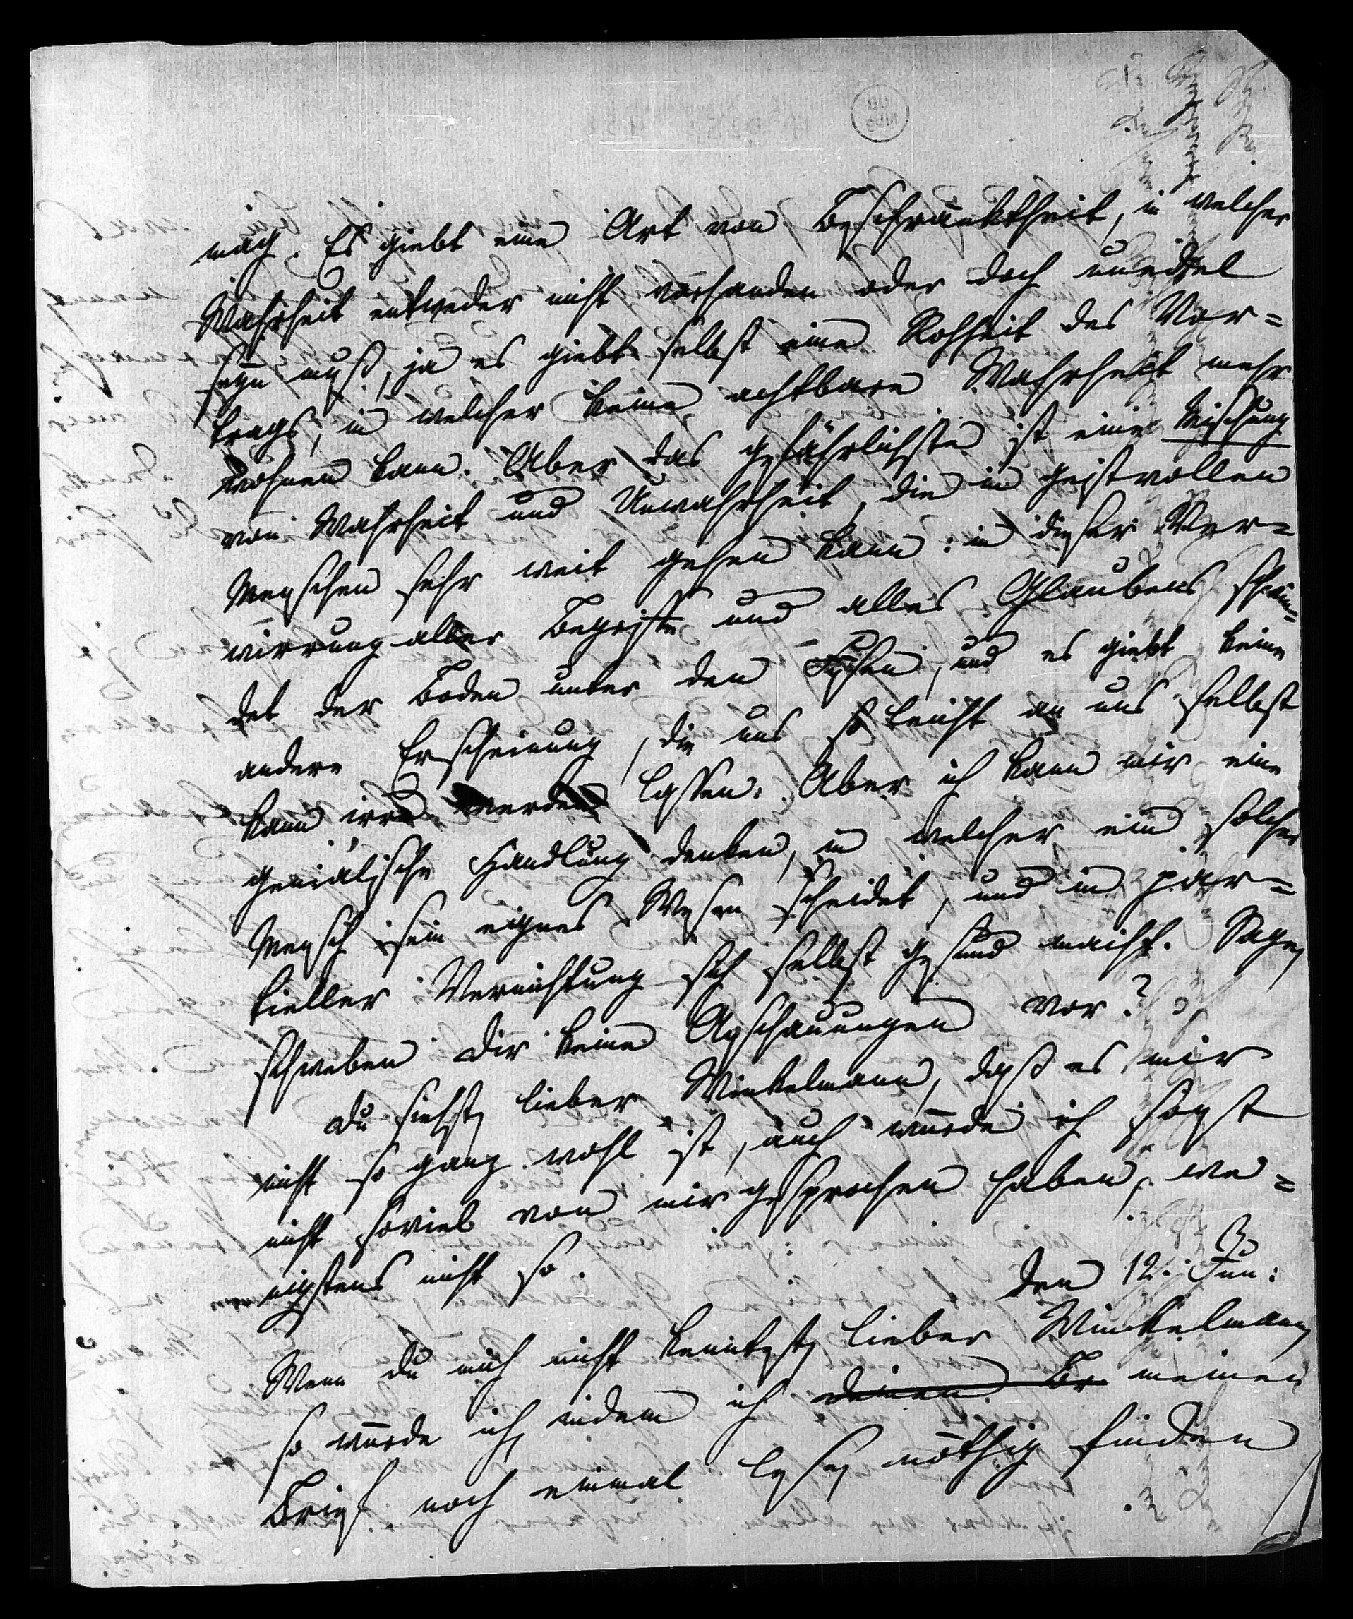 mag. Es giebt eine Art von Beschränktheit, in welcher
Wahrheit entweder nicht vorhanden oder doch uneitel
seyn muß, ja es giebt selbst eine Rohheit des Vor=
trags, in welcher keine achtbare Wahrheit mehr
wohnen kann. Aber das gefährlichste ist eine Mischung
von Wahrheit und Unwahrheit, die in geistvollen
Menschen sehr weit gehen kann: in dieser Ver=
wirrung aller Begriffe und alles Glaubens schwin=
det der Boden unter den Füßen, und es giebt keine
andere Erscheinung, die uns so leicht an uns selbst
kann irre werden lassen. Aber ich kann mir eine
genialische Handlung denken, in welcher ein solcher
Mensch sein eignes Wesen scheidet, und in par=
tieller Vernichtung sich selbst gesund macht. Sage,
schweben dir keine Anschauungen vor?
Du siehst, lieber Winkelmann, daß es mir
nicht so ganz wohl ist, auch würde ich sonst
nicht soviel von mir gesprochen haben, we=
nigstens nicht so.
den 12. Jun:
Wenn du mich nicht kenntest, lieber Winkelmann,
so würde ich, indem ich deinen Br meinen
Brief noch einmal lese, nöthig finden